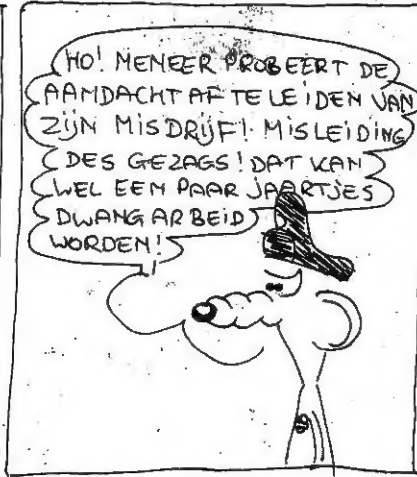 HO! MENEER PROBEERT DE
AAMDACHT AF TE LEIDEN VAN
ZIJN MISDRIJF! MISLEIDING
DES GEZAGS! DAT KAN
WEL EEN PAAR JAARTJES
DWANGARBEID
WORDEN!